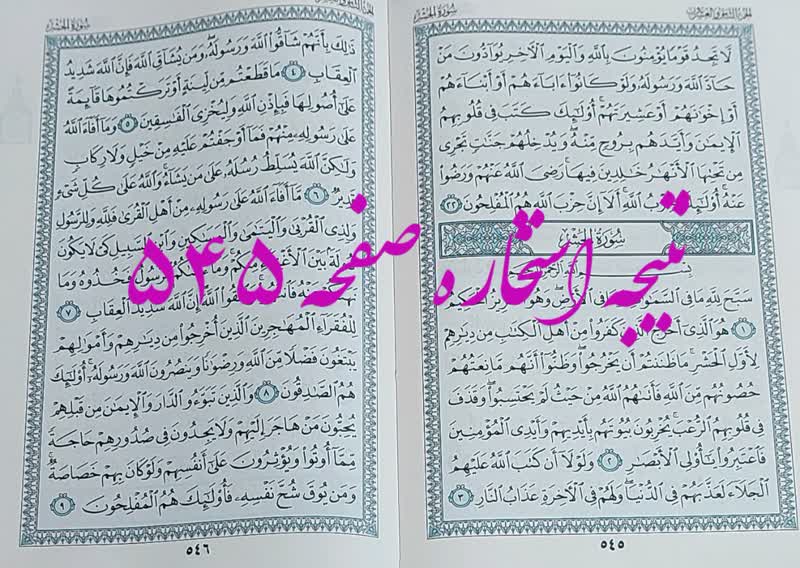 الجزء الثامن والعشرون
سورة الحشر
لَّا تَجِدُ قَوْمًا يُؤْمِنُونَ بِاللَّهِ وَالْيَوْمِ الْآخِرِ يُوَادُّونَ مَنْ
حَادَّ اللَّهَ وَرَسُولَهُ وَلَوْ كَانُوا ءَابَاءَهُمْ أَوْ أَبْنَاءَهُمْ
أَوْ إِخْوَانَهُمْ أَوْ عَشِيرَتَهُمْ أُولَٰئِكَ كَتَبَ فِي قُلُوبِهِمُ
الْإِيمَٰنَ وَأَيَّدَهُم بِرُوحٍ مِّنْهُ وَيُدْخِلُهُمْ جَنَّٰتٍ تَجْرِي
مِن تَحْتِهَا الْأَنْهَٰرُ خَٰلِدِينَ فِيهَا رَضِيَ اللَّهُ عَنْهُمْ وَرَضُوا
عَنْهُ أُولَٰئِكَ حِزْبُ اللَّهِ أَلَا إِنَّ حِزْبَ اللَّهِ هُمُ الْمُفْلِحُونَ ٢٢
سُورَةُ الْحَشْرِ
بِسْمِ اللَّهِ الرَّحْمَٰنِ الرَّحِيمِ
سَبَّحَ لِلَّهِ مَا فِي السَّمَٰوَٰتِ وَمَا فِي الْأَرْضِ وَهُوَ الْعَزِيزُ الْحَكِيمُ
١ هُوَ الَّذِي أَخْرَجَ الَّذِينَ كَفَرُوا مِنْ أَهْلِ الْكِتَٰبِ مِن دِيَٰرِهِمْ
لِأَوَّلِ الْحَشْرِ مَا ظَنَنتُمْ أَن يَخْرُجُوا وَظَنُّوا أَنَّهُم مَّانِعَتُهُمْ
حُصُونُهُم مِّنَ اللَّهِ فَأَتَىٰهُمُ اللَّهُ مِنْ حَيْثُ لَمْ يَحْتَسِبُوا وَقَذَفَ
فِي قُلُوبِهِمُ الرُّعْبَ يُخْرِبُونَ بُيُوتَهُم بِأَيْدِيهِمْ وَأَيْدِي الْمُؤْمِنِينَ
فَاعْتَبِرُوا يَٰأُولِي الْأَبْصَٰرِ ٢ وَلَوْلَا أَن كَتَبَ اللَّهُ عَلَيْهِمُ
الْجَلَاءَ لَعَذَّبَهُمْ فِي الدُّنْيَا وَلَهُمْ فِي الْآخِرَةِ عَذَابُ النَّارِ ٣
٥٤٥
الجزء الثامن والعشرون
سورة الحشر
ذَٰلِكَ بِأَنَّهُمْ شَاقُّوا اللَّهَ وَرَسُولَهُ وَمَن يُشَاقِّ اللَّهَ فَإِنَّ اللَّهَ شَدِيدُ
الْعِقَابِ ٤ مَا قَطَعْتُم مِّن لِّينَةٍ أَوْ تَرَكْتُمُوهَا قَائِمَةً
عَلَىٰ أُصُولِهَا فَبِإِذْنِ اللَّهِ وَلِيُخْزِيَ الْفَٰسِقِينَ ٥ وَمَا أَفَاءَ اللَّهُ
عَلَىٰ رَسُولِهِ مِنْهُمْ فَمَا أَوْجَفْتُمْ عَلَيْهِ مِنْ خَيْلٍ وَلَا رِكَابٍ
وَلَٰكِنَّ اللَّهَ يُسَلِّطُ رُسُلَهُ عَلَىٰ مَن يَشَاءُ وَاللَّهُ عَلَىٰ كُلِّ شَيْءٍ
قَدِيرٌ ٦ مَّا أَفَاءَ اللَّهُ عَلَىٰ رَسُولِهِ مِنْ أَهْلِ الْقُرَىٰ فَلِلَّهِ وَلِلرَّسُولِ
وَلِذِي الْقُرْبَىٰ وَالْيَتَٰمَىٰ وَالْمَسَٰكِينِ وَابْنِ السَّبِيلِ كَيْ لَا يَكُونَ
دُولَةً بَيْنَ الْأَغْنِيَاءِ مِنكُمْ وَمَا ءَاتَىٰكُمُ الرَّسُولُ فَخُذُوهُ وَمَا
نَهَىٰكُمْ عَنْهُ فَانتَهُوا وَاتَّقُوا اللَّهَ إِنَّ اللَّهَ شَدِيدُ الْعِقَابِ ٧
لِلْفُقَرَاءِ الْمُهَٰجِرِينَ الَّذِينَ أُخْرِجُوا مِن دِيَٰرِهِمْ وَأَمْوَٰلِهِمْ
يَبْتَغُونَ فَضْلًا مِّنَ اللَّهِ وَرِضْوَٰنًا وَيَنصُرُونَ اللَّهَ وَرَسُولَهُ أُولَٰئِكَ
هُمُ الصَّٰدِقُونَ ٨ وَالَّذِينَ تَبَوَّءُو الدَّارَ وَالْإِيمَٰنَ مِن قَبْلِهِمْ
يُحِبُّونَ مَنْ هَاجَرَ إِلَيْهِمْ وَلَا يَجِدُونَ فِي صُدُورِهِمْ حَاجَةً
مِّمَّا أُوتُوا وَيُؤْثِرُونَ عَلَىٰ أَنفُسِهِمْ وَلَوْ كَانَ بِهِمْ خَصَاصَةٌ
وَمَن يُوقَ شُحَّ نَفْسِهِ فَأُولَٰئِكَ هُمُ الْمُفْلِحُونَ ٩
٥٤٦
نتیجه استخاره صفحه ۵۴۵